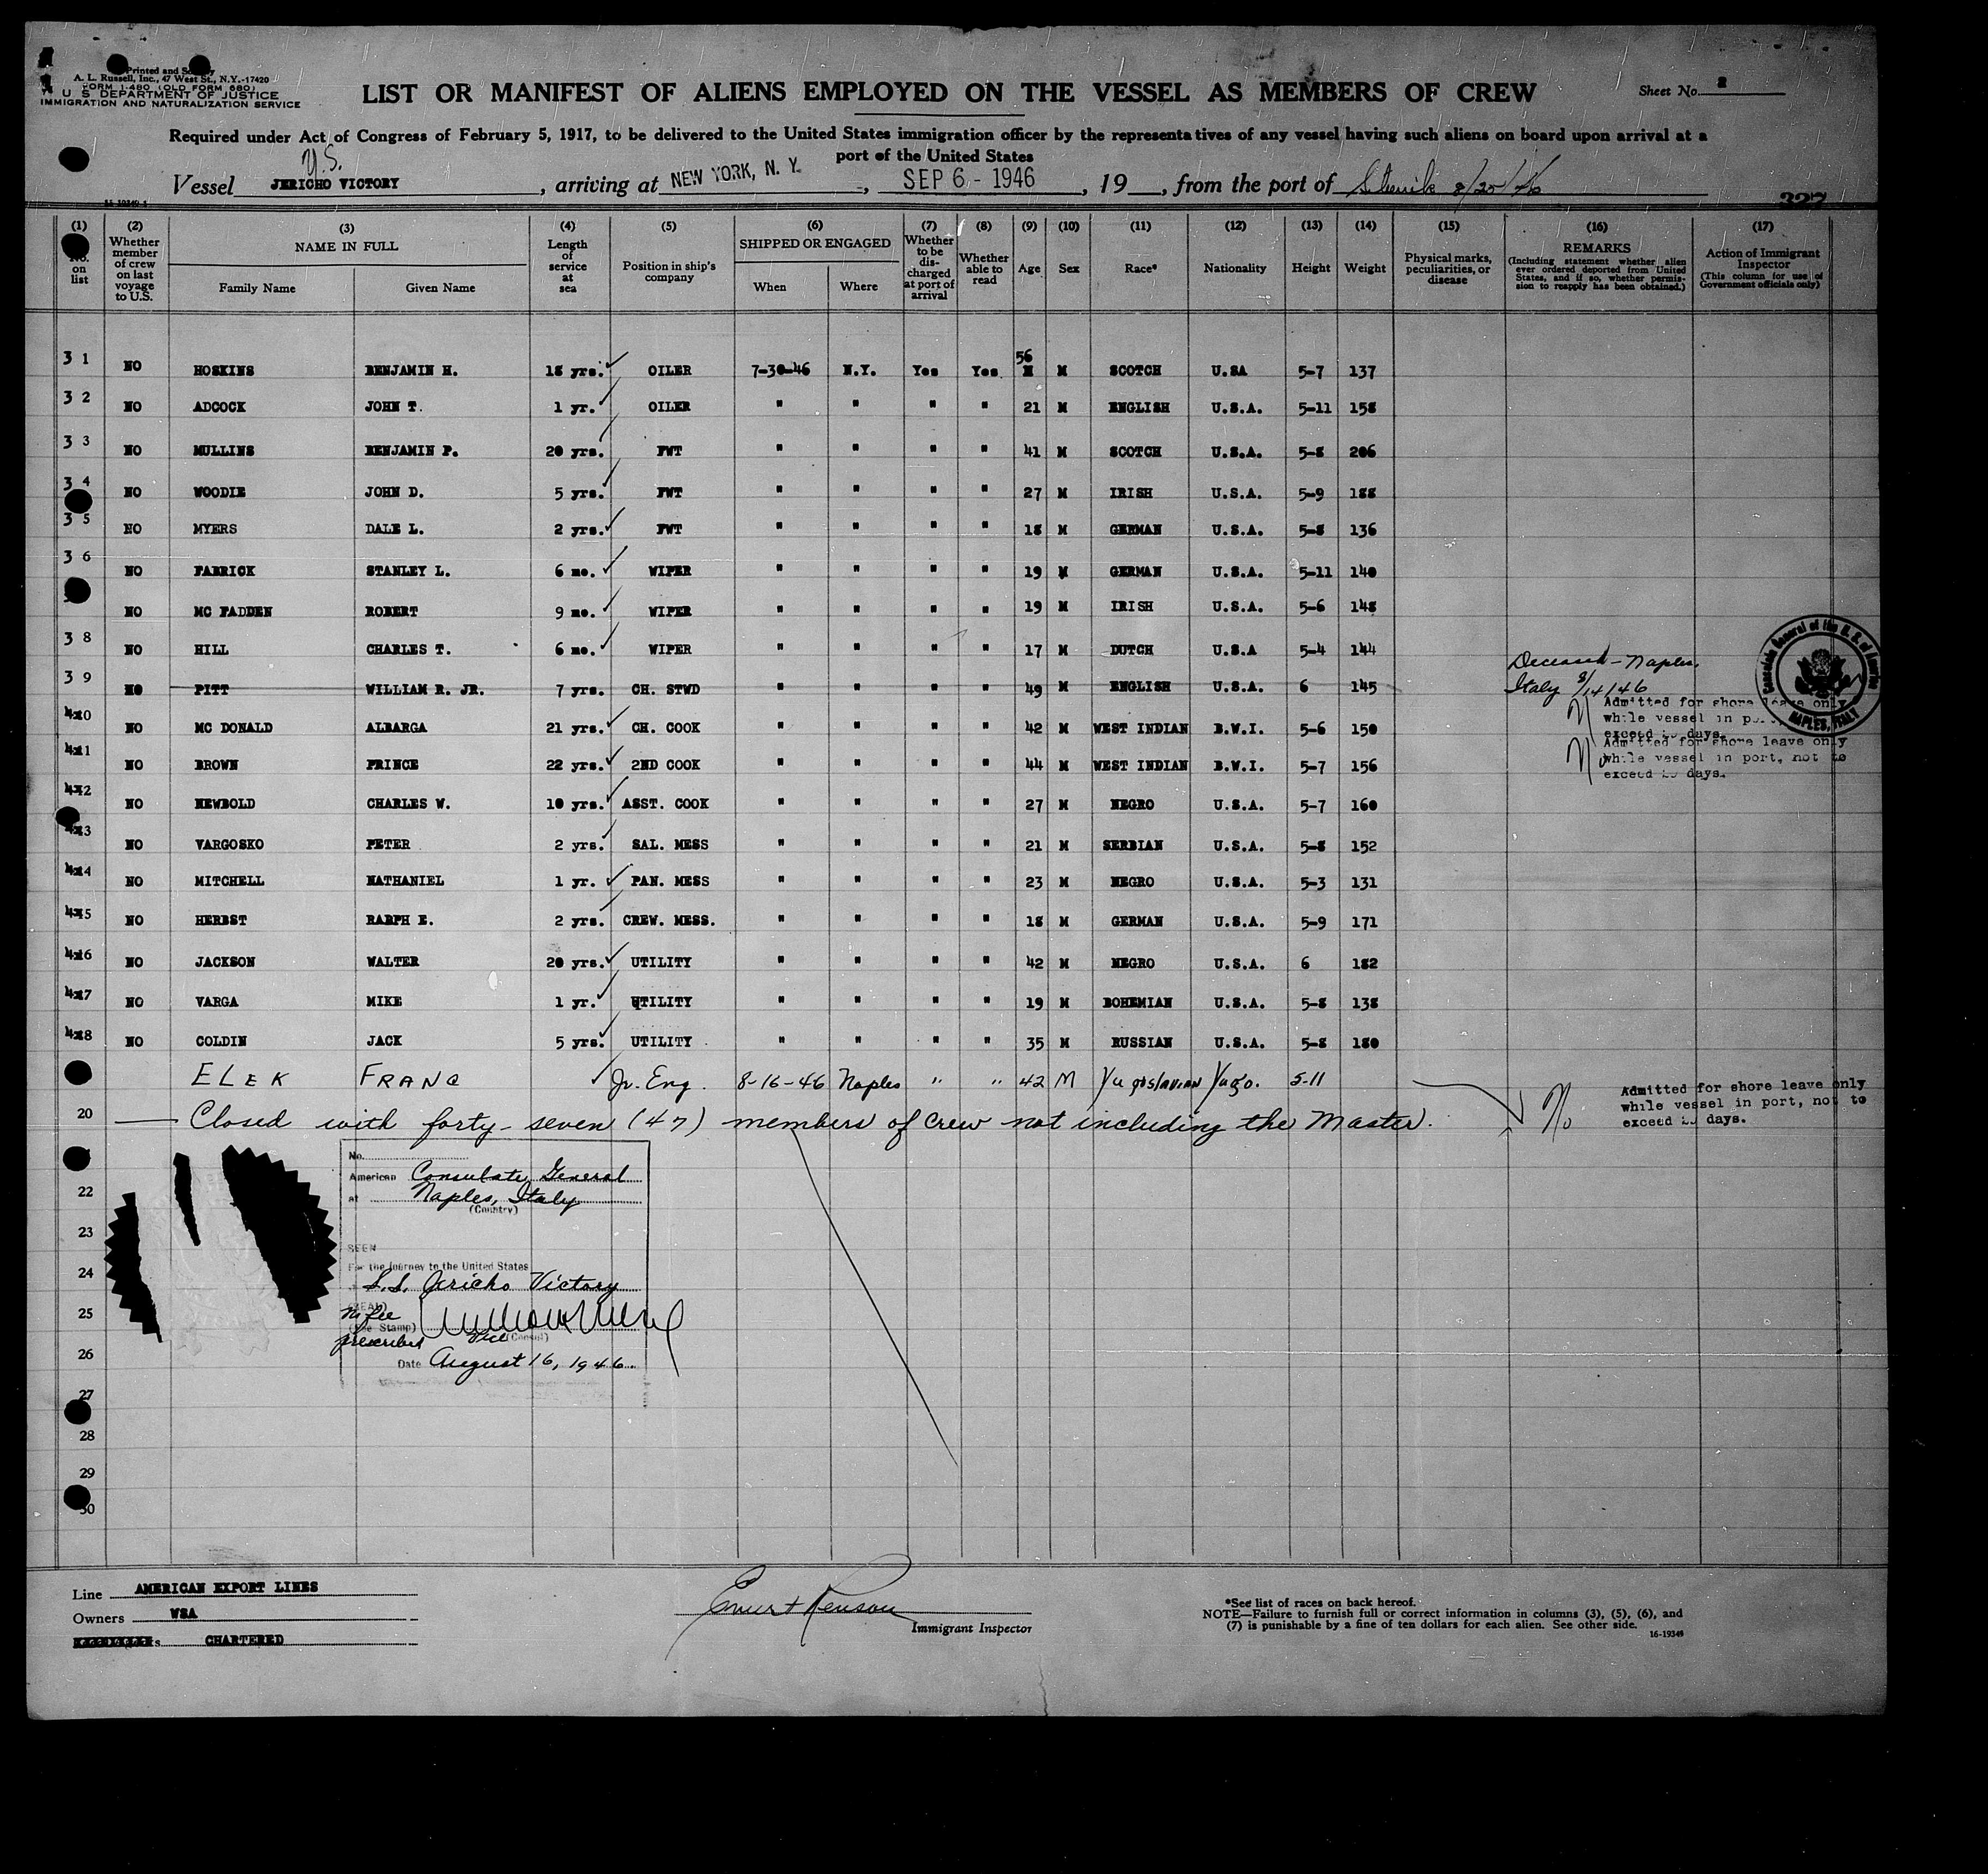 Printed and Sold by
A. L. Russell, Inc., 47 West St., N.Y.-17420
FORM I-480 (OLD FORM 680)
U S DEPARTMENT OF JUSTICE
IMMIGRATION AND NATURALIZATION SERVICE
LIST OR MANIFEST OF ALIENS EMPLOYED ON THE VESSEL AS MEMBERS OF CREW
Sheet No. 2
Required under Act of Congress of February 5, 1917, to be delivered to the United States immigration officer by the representatives of any vessel having such aliens on board upon arrival at a
port of the United States
U.S.
Vessel JERICHO VICTORY, arriving at NEW YORK, N. Y., SEP 6 - 1946, 19, from the port of 8/25/46
327
(1) No. on list
(2) Whether member of crew on last voyage to U.S.
(3) NAME IN FULL Family Name Given Name
(4) Length of service at sea
(5) Position in ship's company
(6) SHIPPED OR ENGAGED When Where
(7) Whether to be discharged at port of arrival
(8) Whether able to read
(9) Age
(10) Sex
(11) Race*
(12) Nationality
(13) Height
(14) Weight
(15) Physical marks, peculiarities, or disease
(16) REMARKS (Including statement whether alien ever ordered deported from United States, and if so, whether permission to reapply has been obtained.)
(17) Action of Immigrant Inspector (This column for use of Government officials only)
3 1 NO HOSKINS BENJAMIN H. 18 yrs. OILER 7-30-46 N.Y. Yes Yes 56 M SCOTCH U.SA 5-7 137
3 2 NO ADCOCK JOHN T. 1 yr. OILER " " " " 21 M ENGLISH U.S.A. 5-11 158
3 3 NO MULLINS BENJAMIN P. 20 yrs. FWT " " " " 41 M SCOTCH U.S.A. 5-8 206
3 4 NO WOODIE JOHN D. 5 yrs. FWT " " " " 27 M IRISH U.S.A. 5-9 188
3 5 NO MYERS DALE L. 2 yrs. FWT " " " " 18 M GERMAN U.S.A. 5-8 136
3 6 NO FABRICK STANLEY L. 6 mo. WIPER " " " " 19 M GERMAN U.S.A. 5-11 140
NO MC FADDEN ROBERT 9 mo. WIPER " " " " 19 M IRISH U.S.A. 5-6 148
3 8 NO HILL CHARLES T. 6 mo. WIPER " " " " 17 M DUTCH U.S.A 5-4 144
3 9 NO PITT WILLIAM R. JR. 7 yrs. CH. STWD " " " " 49 M ENGLISH U.S.A. 6 145 Deceased - Naples, Italy 8/14/46
40 NO MC DONALD ALBARGA 21 yrs. CH. COOK " " " " 42 M WEST INDIAN B.W.I. 5-6 150 Admitted for shore leave only while vessel in port, exceed days.
41 NO BROWN PRINCE 22 yrs. 2ND COOK " " " " 44 M WEST INDIAN B.W.I. 5-7 156 No Admitted for shore leave only while vessel in port, not to exceed days.
42 NO NEWBOLD CHARLES W. 10 yrs. ASST. COOK " " " " 27 M NEGRO U.S.A. 5-7 160
43 NO VARGOSKO PETER 2 yrs. SAL. MESS " " " " 21 M SERBIAN U.S.A. 5-8 152
44 NO MITCHELL NATHANIEL 1 yr. PAN. MESS " " " " 23 M NEGRO U.S.A. 5-3 131
45 NO HERBST RALPH E. 2 yrs. CREW. MESS. " " " " 18 M GERMAN U.S.A. 5-9 171
46 NO JACKSON WALTER 20 yrs. UTILITY " " " " 42 M NEGRO U.S.A. 6 182
47 NO VARGA MIKE 1 yr. UTILITY " " " " 19 M BOHEMIAN U.S.A. 5-8 138
48 NO COLDIN JACK 5 yrs. UTILITY " " " " 35 M RUSSIAN U.S.A. 5-8 180
ELEK FRANC Jr. Eng. 8-16-46 Naples " " 42 M Yugoslavian Yugo. 5-11 No Admitted for shore leave only while vessel in port, not to exceed days.
20 Closed with forty-seven (47) members of crew not including the Master.
Consulate General of the U. S. of America NAPLES, ITALY
22
23
24
25
26
27
28
29
30
No.
American Consulate General
at Naples, Italy
(Country)
SEEN
For the journey to the United States
S.S. Jericho Victory
(SEAL)
No fee
(Fee Stamp)
prescribed
Vice (Consul)
Date August 16, 1946
Line AMERICAN EXPORT LINES
Owners WSA
CHARTERED
Immigrant Inspector
*See list of races on back hereof.
NOTE—Failure to furnish full or correct information in columns (3), (5), (6), and
(7) is punishable by a fine of ten dollars for each alien. See other side.
16-19349